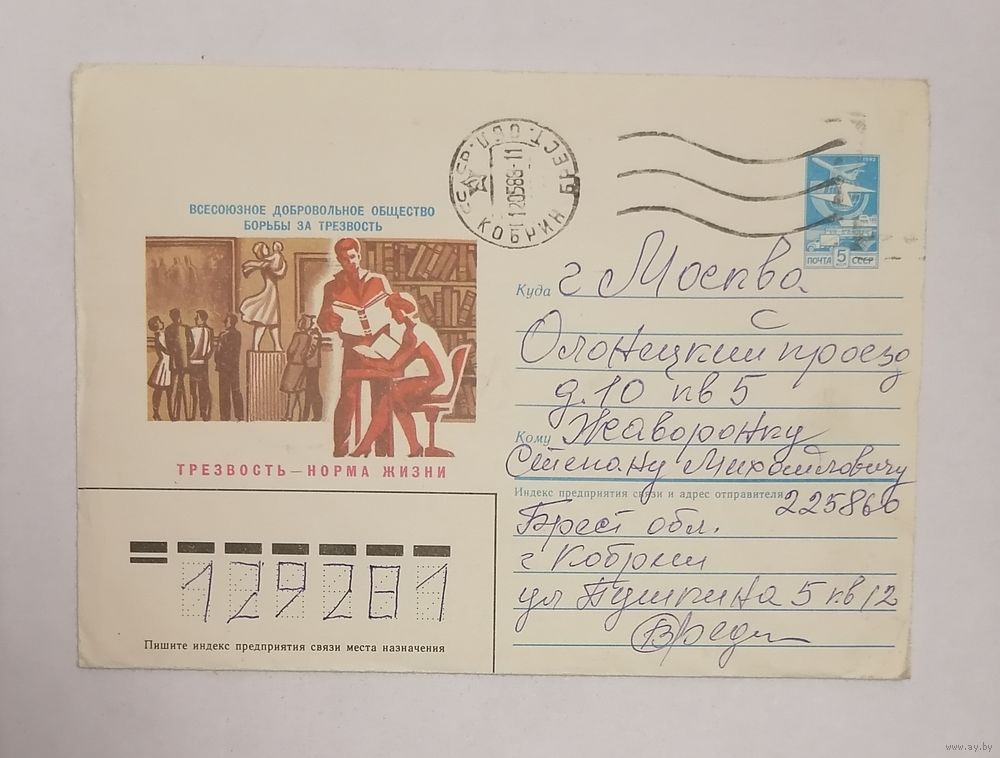 ВСЕСОЮЗНОЕ ДОБРОВОЛЬНОЕ ОБЩЕСТВО
БОРЬБЫ ЗА ТРЕЗВОСТЬ
ТРЕЗВОСТЬ — НОРМА ЖИЗНИ
СССР
БРЕСТ. ОБЛ.
КОБРИН
1992
ПОЧТА 5 СССР
Куда г Москва
Олонецкий проезд
д. 10 кв 5
Кому Жаворонку
Степану Михайловичу
Индекс предприятия связи и адрес отправителя 225860
Брест обл.
г Кобрин
ул Пушкина 5 кв 12
129281
Пишите индекс предприятия связи места назначения
www.ay.by